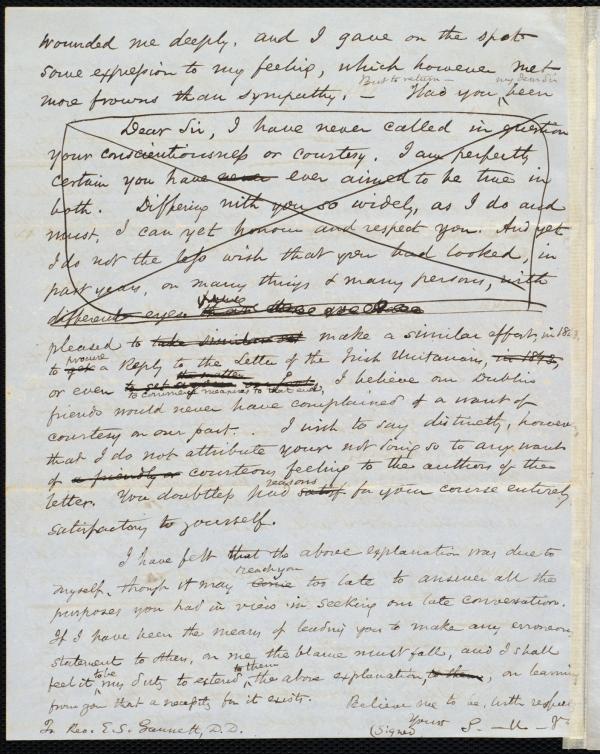 wounded me deeply, and I gave on the spot
some expression to my feeling, which however met
more frowns than sympathy. — But to return — Had you my dear Sir been
Dear Sir, I have never called in question
your conscientiousness or courtesy. I am perfectly
certain you have never ever aimed to be true in
both. Differing with you so widely, as I do and
must, I can yet honour and respect you. And yet
I do not the less wish that you had looked, in
past years, on many things & many persons, with
different eyes
pleased to take similar make a similar effort, in 1843,
to get procure a Reply to the Letter of the Irish Unitarians, in 1843,
or even to commence measures to that end, I believe our Dublin
friends would never have complained of a want of
courtesy on our part. I wish to say distinctly, however,
that I do not attribute your not doing so to any want
of a friendly or courteous feeling to the authors of the
letter. You doubtless had reasons for your course entirely
satisfactory to yourself.
I have felt that the above explanation was due to
myself, though it may come reach you too late to answer all the
purposes you had in view in seeking our late conversation.
If I have been the means of leading you to make any erroneous
statement to others, on me the blame must fall, and I shall
feel it to be my duty to extend to them the above explanation, to them, on learning
from you that a necessity for it exists. Believe me to be, with respect,
Yours
To Rev. E. S. Gannett, D.D. (Signed S — M — Jr.